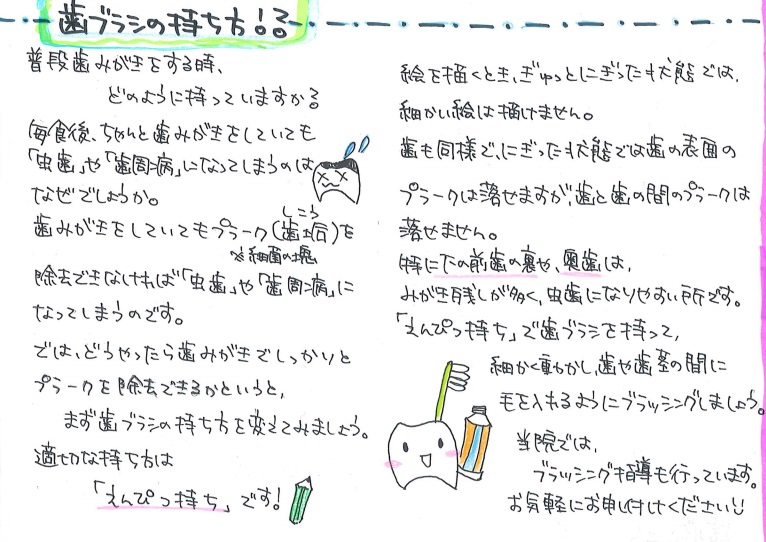 歯ブラシの持ち方!?
普段歯みがきをする時、
どのように持っていますか?
毎食後、ちゃんと歯みがきをしていても
「虫歯」や「歯周病」になってしまうのは
なぜでしょうか。
しこう
歯みがきをしていてもプラーク(歯垢)を
※細菌の塊
除去できなければ「虫歯」や「歯周病」に
なってしまうのです。
では、どうやったら歯みがきでしっかりと
プラークを除去できるかというと、
まず歯ブラシの持ち方を変えてみましょう。
適切な持ち方は
「えんぴつ持ち」です!
絵を描くとき、ぎゅっとにぎった状態では、
細かい絵は描けません。
歯も同様で、にぎった状態では歯の表面の
プラークは落せますが、歯と歯の間のプラークは
落せません。
特に下の前歯の裏や、奥歯は、
みがき残しが多く、虫歯になりやすい所です。
「えんぴつ持ち」で歯ブラシを持って、
細かく動かし、歯や歯茎の間に
毛を入れるようにブラッシングしましょう。
当院では、
ブラッシング指導も行っています。
お気軽にお申し付けください